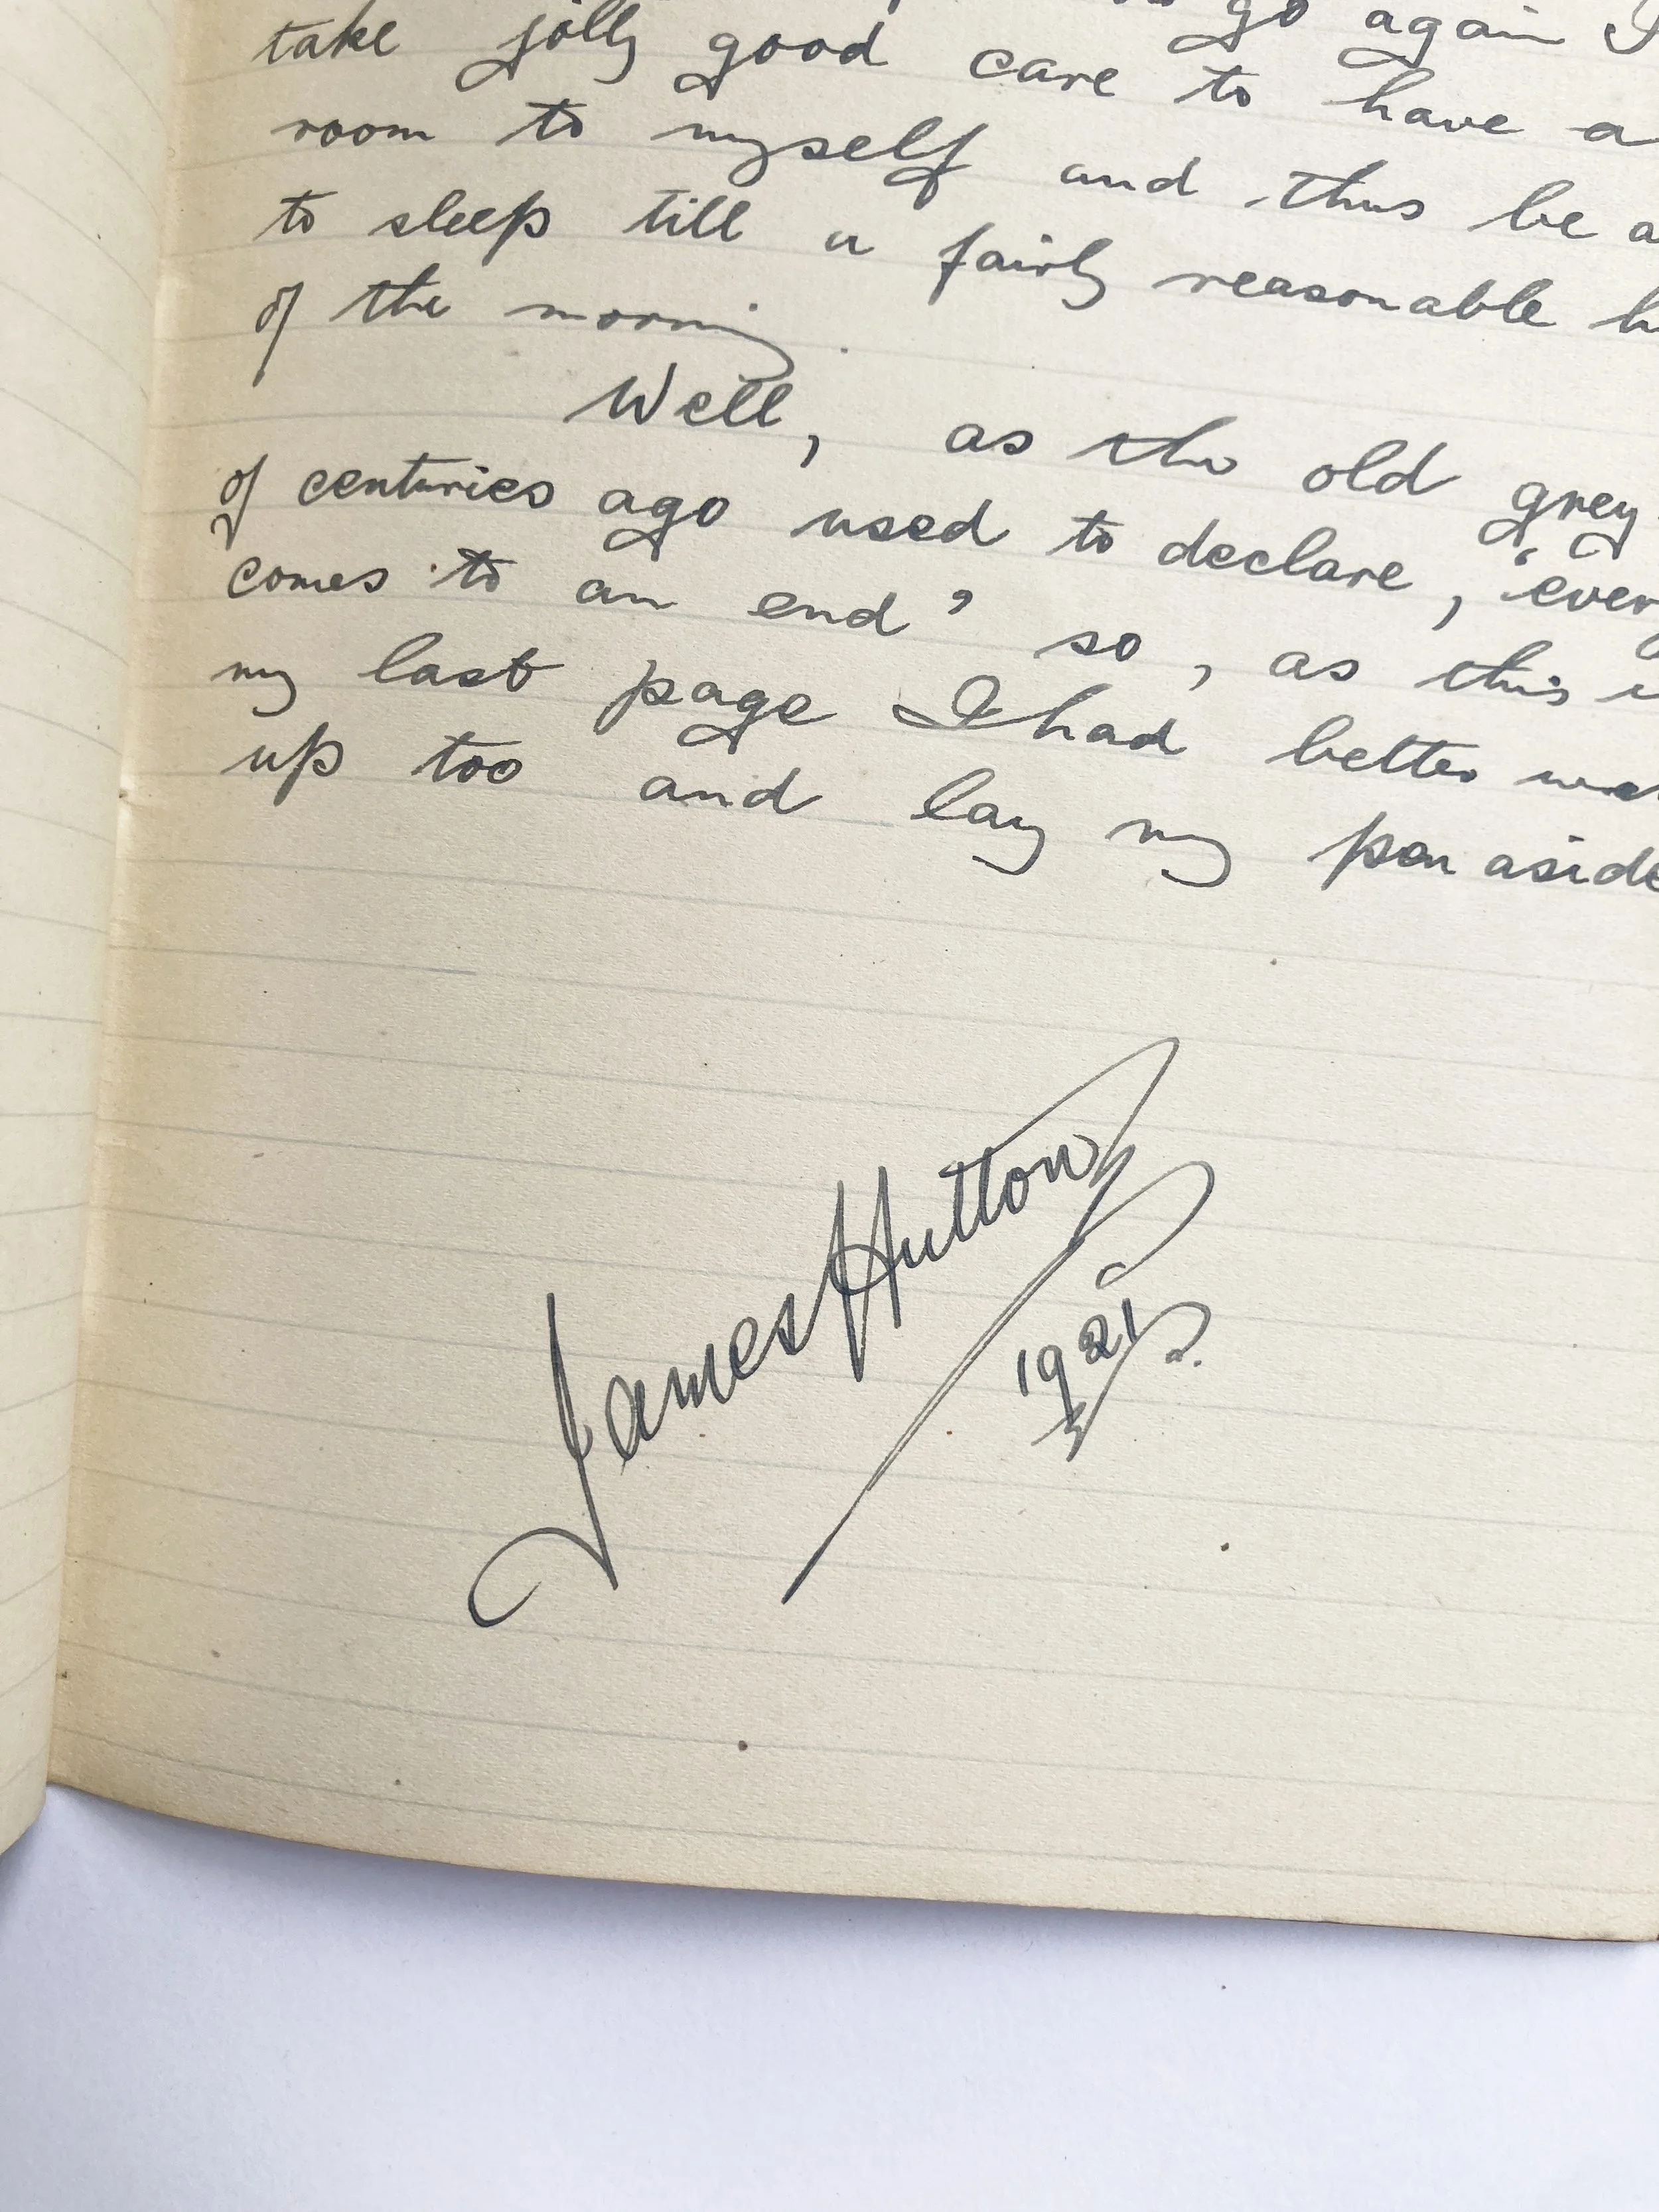 go again I
take jolly good care to have a
room to myself and thus be a
to sleep till a fairly reasonable h
of the morning.
Well, as the old grey
of centuries ago used to declare, 'every
comes to an end' so, as this i
my last page I had better
up too and lay my pen aside
James Hutton
1921